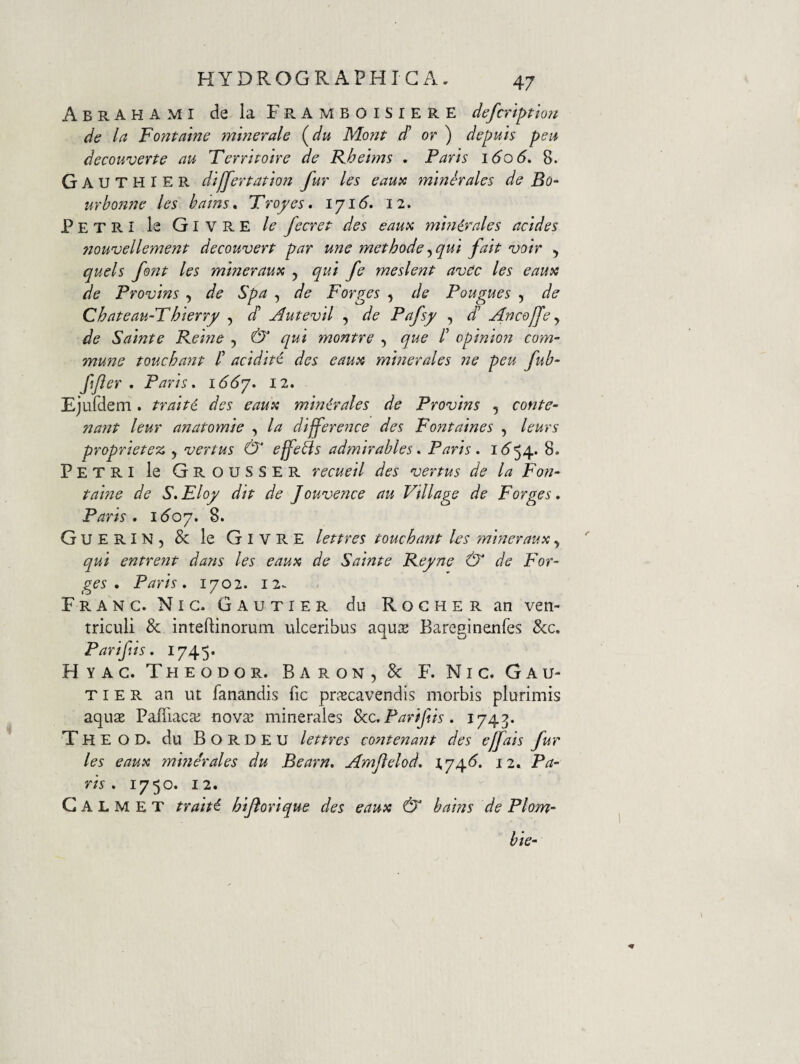 HYDROGRAPHICA. 47
ABRAHAMI de la FRAMBOISIERE deſcription
de la Fontaine minerale (du Mont d' or ) depuis peu
decouverte au Territoire de Rheims . Paris 1606. 8.
GAUTHIER diſſertation ſur les eaux minérales de Bo-
urbonne les bains. Troyes. 1716. 12.
PETRI le GIVRE le ſecret des eaux minérales acides
nouvellement decouvert par une methode, qui fait voir ,
quels ſont les mineraux , qui ſe meslent avec les eaux
de Provins , de Spa , de Forges , de Pougues , de
Chateau-Thierry , d' Autevil , de Paſsy , d' Ancoſſe,
de Sainte Reine , & qui montre , que l' opinion com-
mune touchant l' acidité des eaux minerales ne peu ſub-
ſiſter . Paris. 1667. 12.
Ejuſdem . traité des eaux minérales de Provins , conte-
nant leur anatomie , la difference des Fontaines , leurs
proprietez , vertus & effects admirables. Paris. 1654. 8.
PETRI le GROUSSER recueil des vertus de la Fon-
taine de S. Eloy dit de Jouvence au Village de Forges.
Paris . 1607. 8.
GUERIN, & le GIVRE lettres touchant les mineraux,
qui entrent dans les eaux de Sainte Reyne & de For-
ges . Paris. 1702. 12.
FRANC. NIC. GAUTIER du ROCHER an ven-
triculi & inteſtinorum ulceribus aquæ Bareginenſes &c.
Pariſiis. 1745.
HYAC. THEODOR. BARON, & F. NIC. GAU-
TIER an ut ſanandis ſic præcavendis morbis plurimis
aquæ Paſſiacæ novæ minerales &c. Pariſiis. 1743.
THEOD. du BORDEU lettres contenant des eſſais ſur
les eaux minérales du Bearn. Amſtelod. 1746. 12. Pa-
ris . 1750. 12.
CALMET traité hiſtorique des eaux & bains de Plom-
bie-